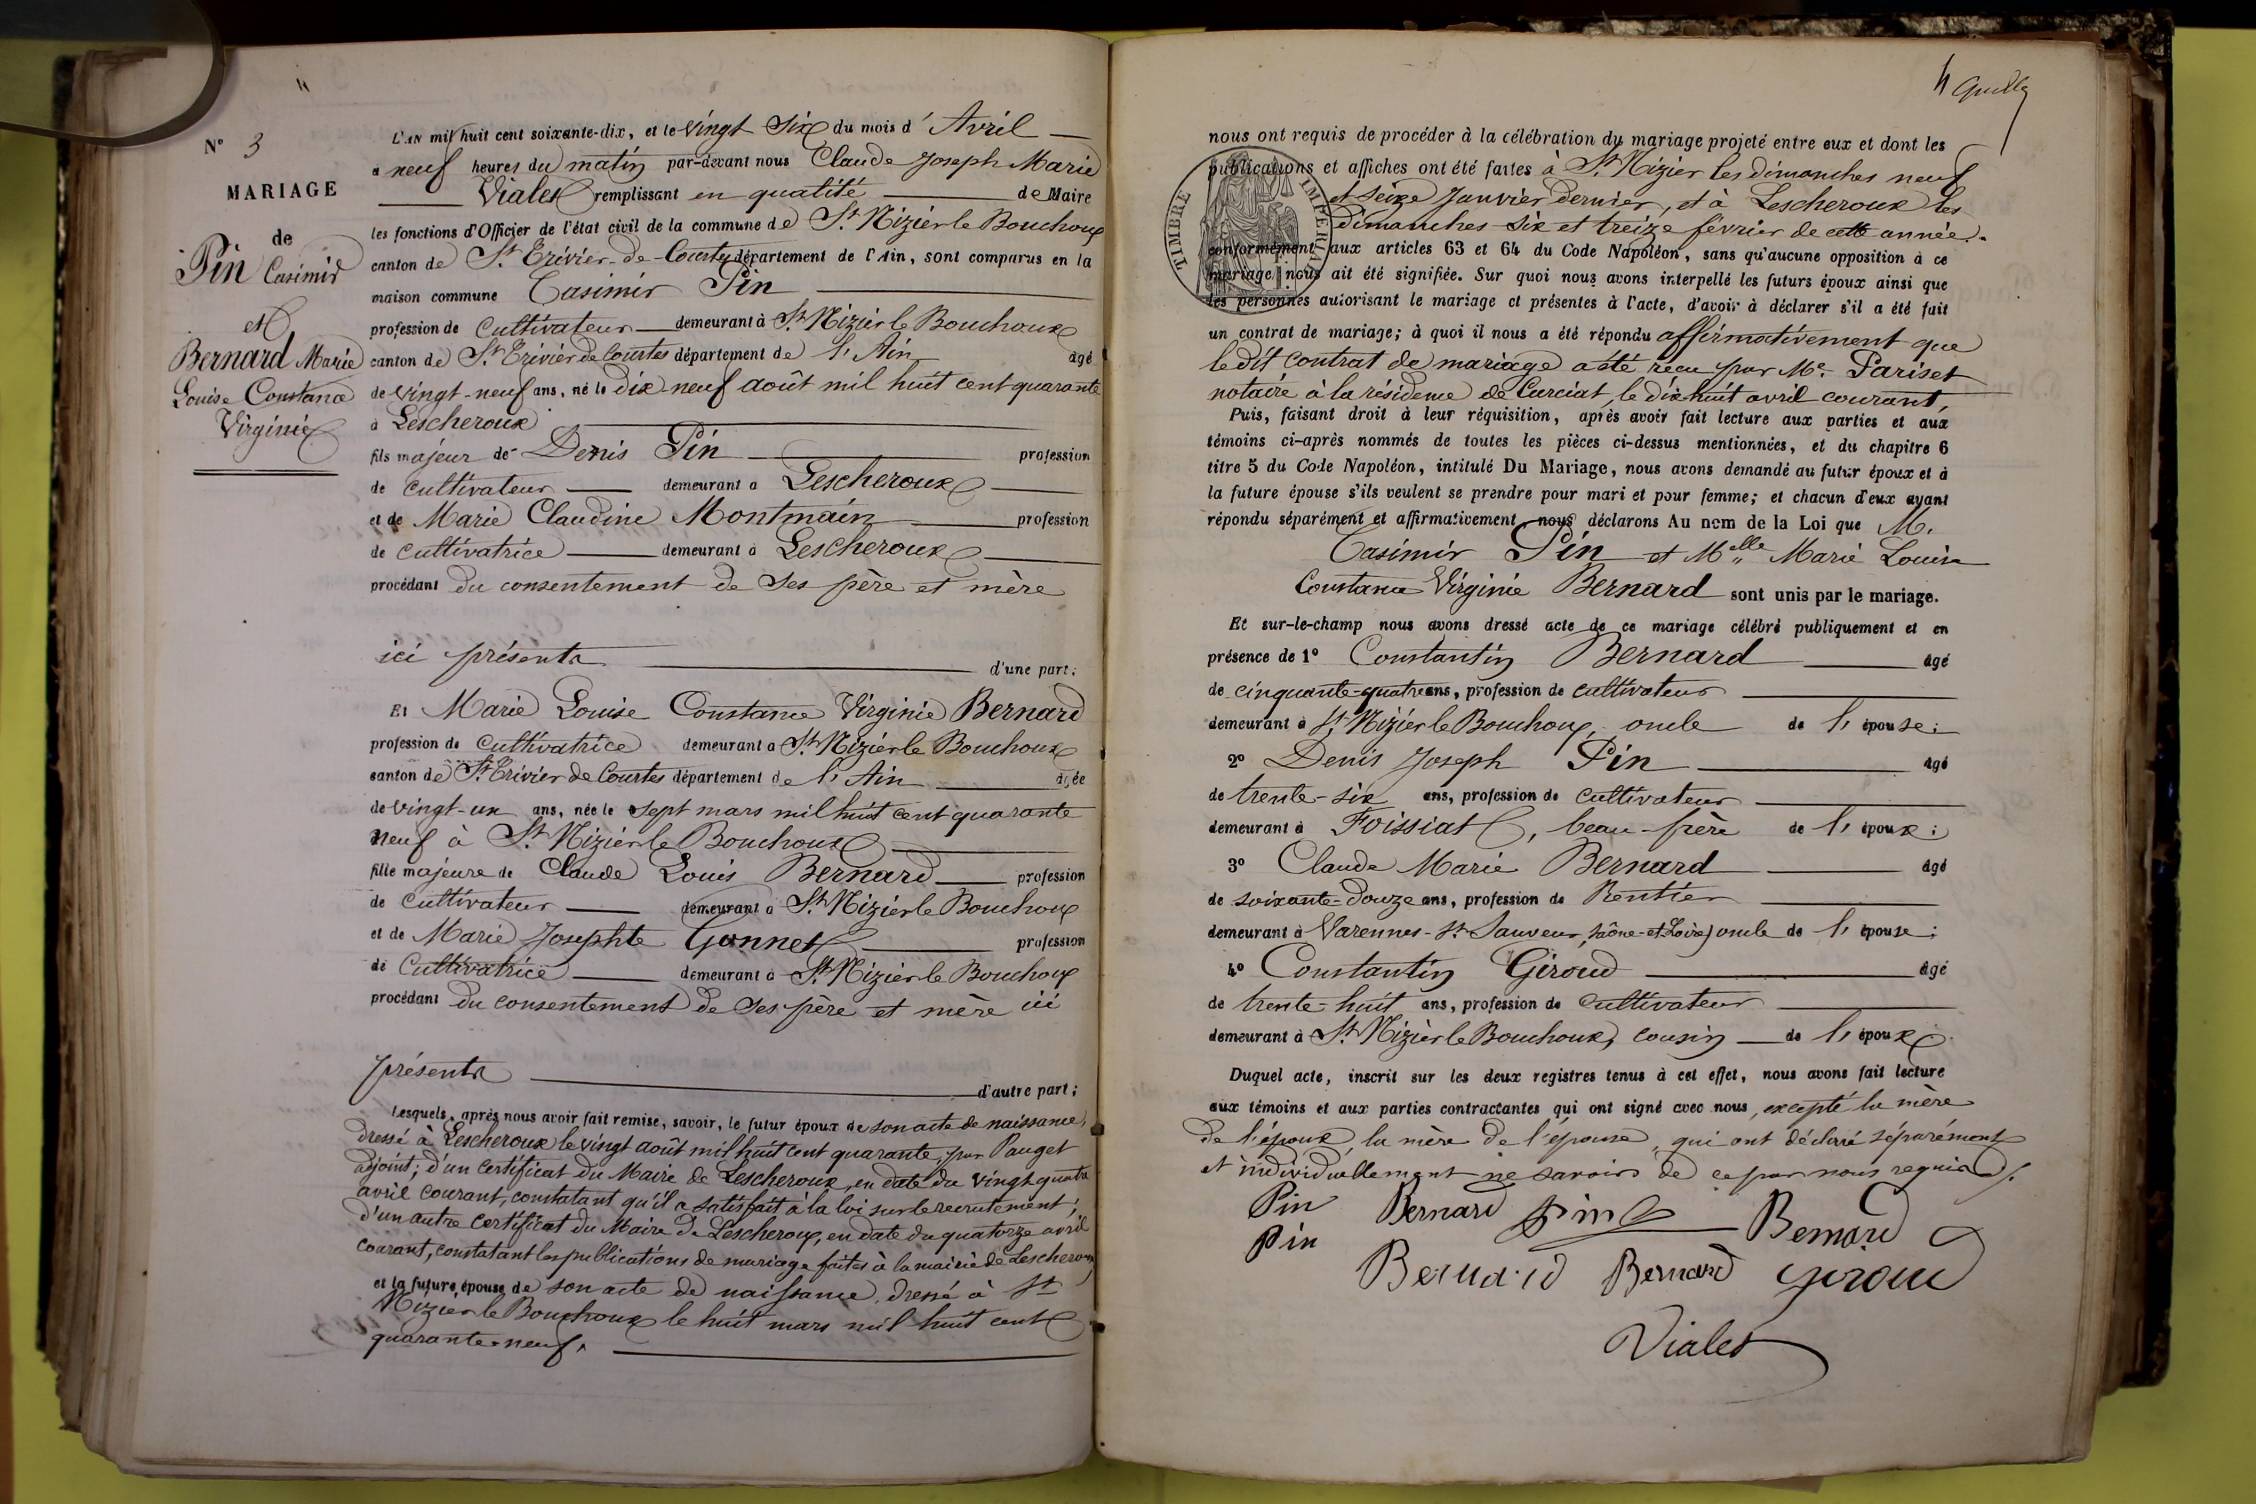 N° 3
MARIAGE
de
Pin Casimir
et
Bernard Marie
Louise Constance
Virginie
L'AN mil huit cent soixante-dix, et le vingt six du mois d'Avril
a neuf heures du matin par-devant nous Claude Joseph Marie
Vialet remplissant en qualité de Maire
les fonctions d'Officier de l'état civil de la commune de St Nizier le Bouchoux
canton de St Trivier-de-Courtes département de l'Ain, sont comparus en la
maison commune Casimir Pin
profession de cultivateur demeurant à St Nizier le Bouchoux
canton de St Trivier de Courtes département de l'Ain âgé
de vingt-neuf ans, né le dix-neuf août mil huit cent quarante
à Lescheroux
fils majeur de Denis Pin profession
de cultivateur demeurant a Lescheroux
et de Marie Claudine Montmain profession
de cultivatrice demeurant à Lescheroux
procédant du consentement de ses père et mère
ici présents d'une part;
Et Marie Louise Constance Virginie Bernard
profession de cultivatrice demeurant a St Nizier le Bouchoux
canton de St Trivier de Courtes département de l'Ain âgée
de vingt-un ans, née le sept mars mil huit cent quarante
neuf à St Nizier le Bouchoux
fille majeure de Claude Louis Bernard profession
de cultivateur demeurant à St Nizier le Bouchoux
et de Marie Josephte Gonnet profession
de cultivatrice demeurant à St Nizier le Bouchoux
procédant du consentement de ses père et mère ici
présents d'autre part;
Lesquels, après nous avoir fait remise, savoir, le futur époux de son acte de naissance,
dressé à Lescheroux le vingt août mil huit cent quarante, par Pauget
adjoint; d'un certificat du Maire de Lescheroux, en date du vingt quatre
avril courant, constatant qu'il a satisfait à la loi sur le recrutement;
d'un autre certificat du Maire de Lescheroux, en date du quatorze avril
courant, constatant les publications de mariage faites à la mairie de Lescheroux
et la future épouse de son acte de naissance, dressé à St
Nizier le Bouchoux le huit mars mil huit cent
quarante-neuf.
4
nous ont requis de procéder à la célébration du mariage projeté entre eux et dont les
publications et affiches ont été faites à St Nizier les dimanches neuf
et seize Janvier dernier, et à Lescheroux les
dimanches six et treize février de cette année.
TIMBRE IMPERIAL
conformément aux articles 63 et 64 du Code Napoléon, sans qu'aucune opposition à ce
mariage nous ait été signifiée. Sur quoi nous avons interpellé les futurs époux ainsi que
les personnes autorisant le mariage et présentes à l'acte, d'avoir à déclarer s'il a été fait
un contrat de mariage; à quoi il nous a été répondu affirmativement que
ledit contrat de mariage a été reçu par Me Pariset
notaire à la résidence de Curciat, le dix-huit avril courant,
Puis, faisant droit à leur réquisition, après avoir fait lecture aux parties et aux
témoins ci-après nommés de toutes les pièces ci-dessus mentionnées, et du chapitre 6
titre 5 du Code Napoléon, intitulé Du Mariage, nous avons demandé au futur époux et à
la future épouse s'ils veulent se prendre pour mari et pour femme; et chacun d'eux ayant
répondu séparément et affirmativement, nous déclarons Au nom de la Loi que M.
Casimir Pin et Melle Marie Louise
Constance Virginie Bernard sont unis par le mariage.
Et sur-le-champ nous avons dressé acte de ce mariage célébré publiquement et en
présence de 1° Constantin Bernard âgé
de cinquante-quatre ans, profession de cultivateur
demeurant à St Nizier le Bouchoux, oncle de l'épouse;
2° Denis Joseph Pin âgé
de trente-six ans, profession de cultivateur
demeurant à Foissiat, beau-frère de l'époux;
3° Claude Marie Bernard âgé
de soixante-douze ans, profession de Rentier
demeurant à Varennes-St Sauveur, (Saône-et-Loire) oncle de l'épouse;
4° Constantin Giroud âgé
de trente-huit ans, profession de cultivateur
demeurant à St Nizier le Bouchoux, cousin de l'époux
Duquel acte, inscrit sur les deux registres tenus à cet effet, nous avons fait lecture
aux témoins et aux parties contractantes qui ont signé avec nous, excepté la mère
de l'époux, la mère de l'épouse, qui ont déclaré séparément
et individuellement ne savoir de ce par nous requis.
Pin Bernard Pin Bernard
Pin
Bernard Bernard Giroud
Vialet